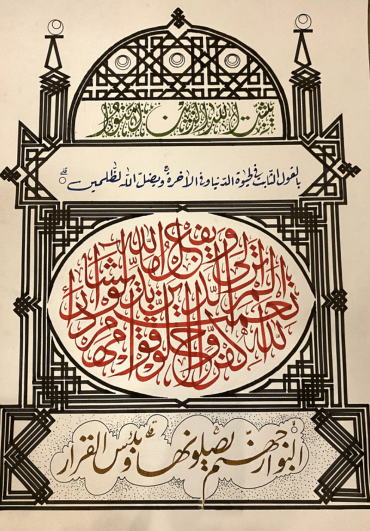 يثبت الله الذين امنوا
بالقول الثابت في الحيوة الدنيا وفي الاخرة ويضل الله الظلمين
ويفعل الله ما يشاء الم تر الى الذين بدلوا نعمت الله كفرا واحلوا قومهم دار
البوار جهنم يصلونها وبئس القرار